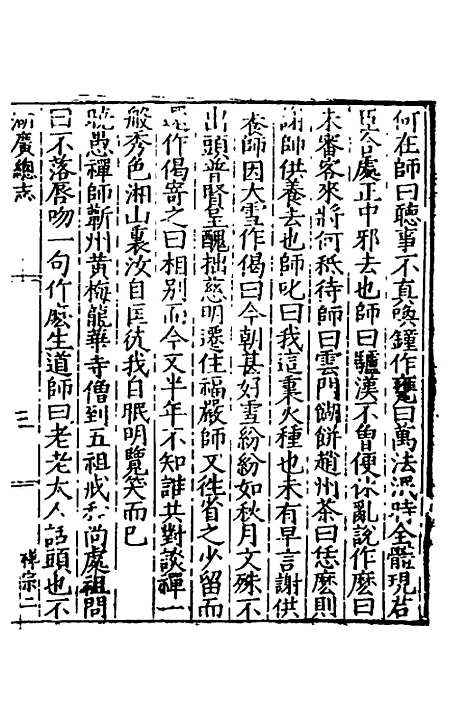 何在師曰聽事不真喚鐘作甕曰萬法泯時全體現君
臣合處正中邪去也師曰驢漢不會便休亂說作麼曰
未審客來將何秖待師曰雲門餬餅趙州茶曰恁麼則
謝師供養去也師叱曰我這裏火種也未有早言謝供
養師因大雪作偈曰今朝甚好雪紛紛如秋月文殊不
出頭普賢呈醜拙慈明遷住福嚴師又徃省之少留而
還作偈寄之曰相別而今又半年不知誰共對談禪一
般秀色湘山裏汝自匡徒我自眠明覽笑而已
曉愚禪師蘄州黃梅龍華寺僧到五祖戒和尚處祖問
曰不落唇吻一句作麽生道師曰老老大人話頭也不
湖廣總志
禪宗二